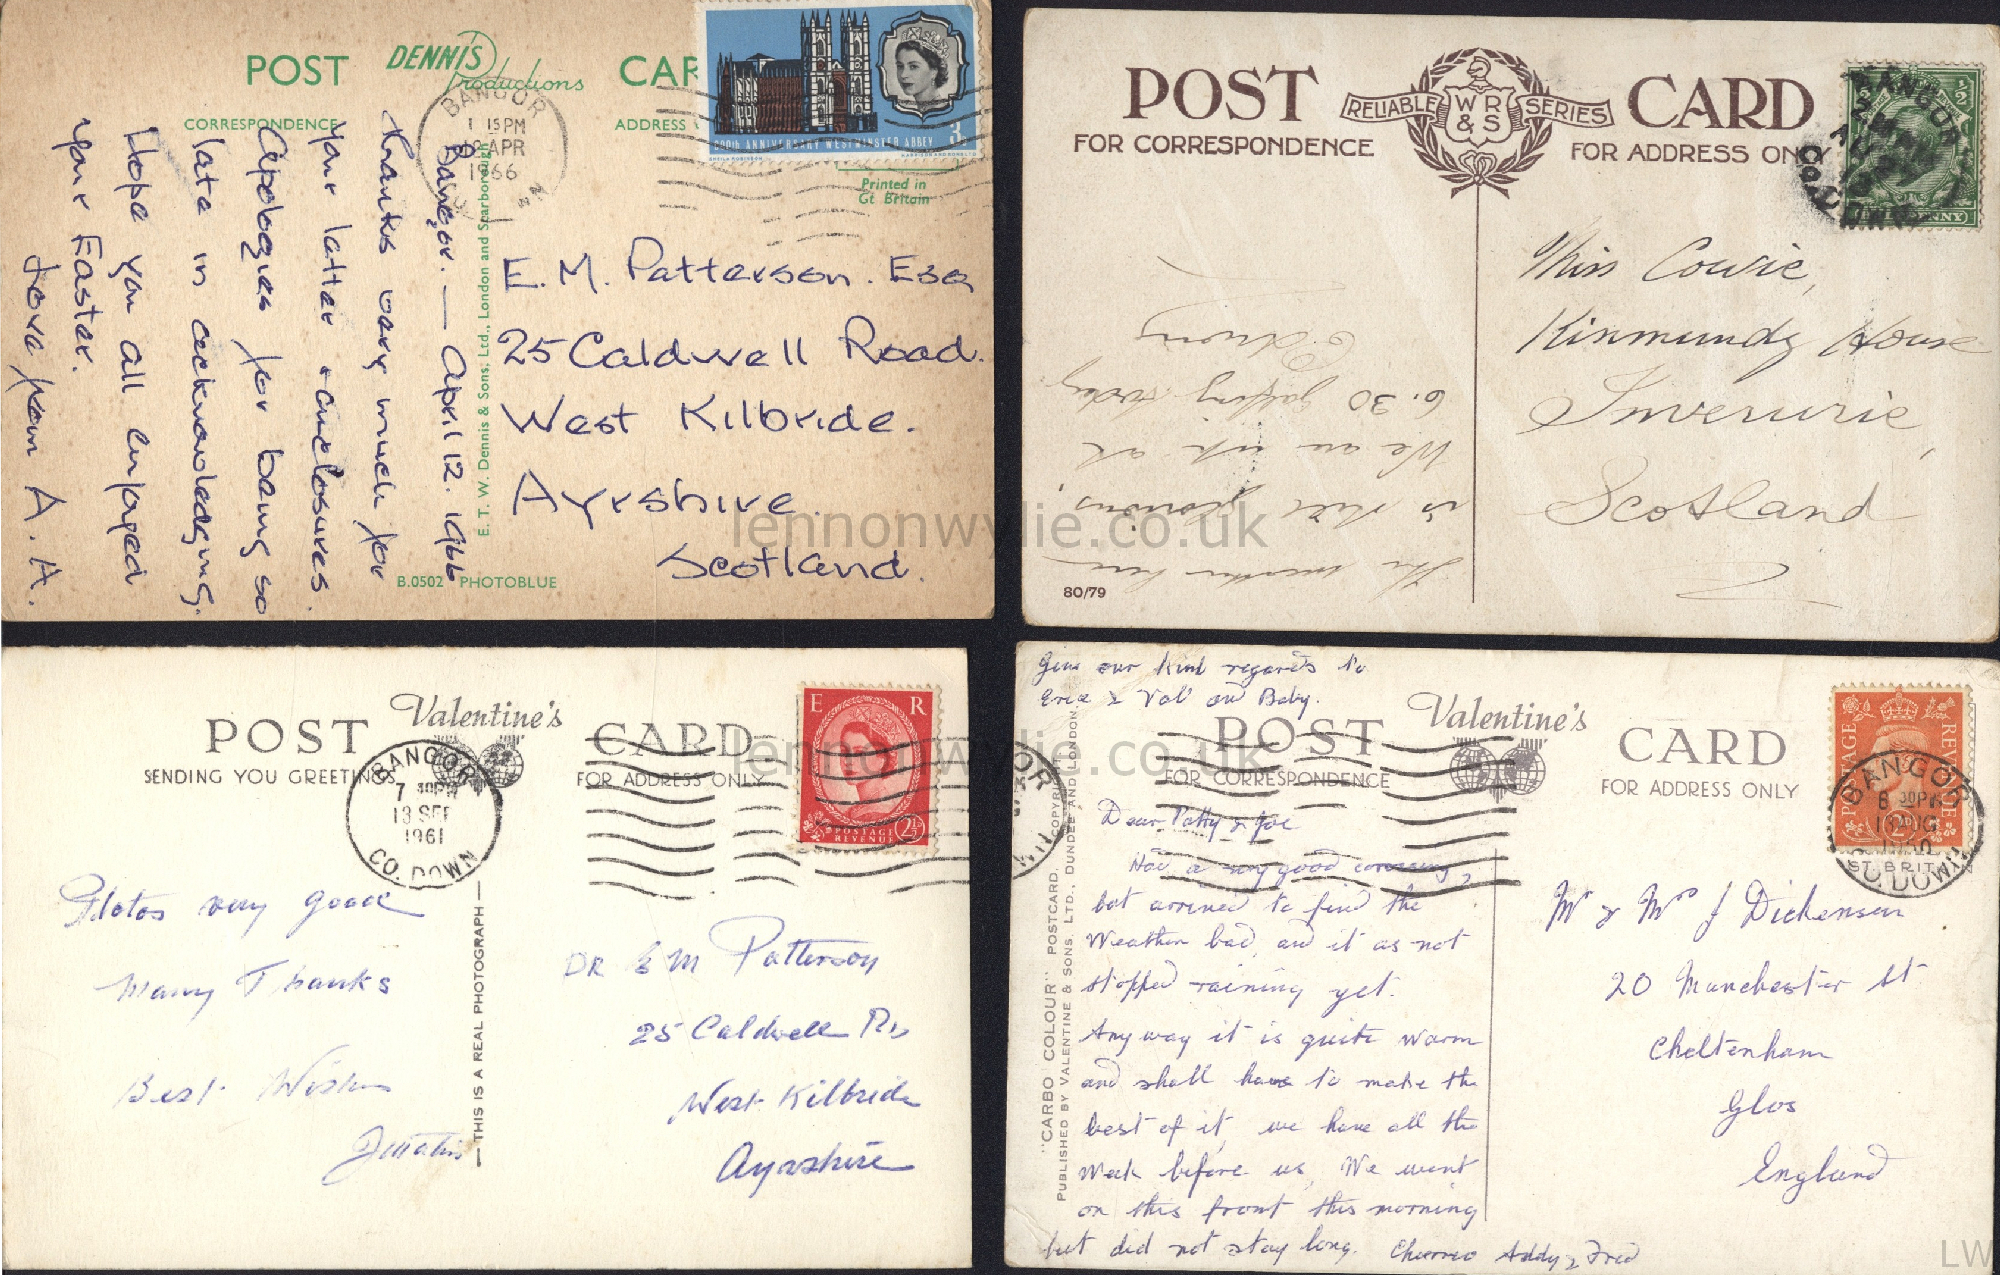 POST DENNIS Productions CAR
CORRESPONDENCE
ADDRESS
BANGOR
1 15 PM
APR
1966
900th ANNIVERSARY WESTMINSTER ABBEY 3
Printed in
Gt Britain
Bangor. — April 12. 1966
Thanks very much for
your letter + enclosures.
Apologies for being so
late in acknowledging.
Hope you all enjoyed
your Easter.
Love from A. A.
E. T. W. Dennis & Sons, Ltd., London and Scarborough
E. M. Patterson. Esq
25 Caldwell Road.
West Kilbride.
Ayrshire.
Scotland.
B.0502 PHOTOBLUE
POST CARD
RELIABLE WR&S SERIES
FOR CORRESPONDENCE
FOR ADDRESS ON
BANGOR
CO. DOWN
½
The weather here
is still glorious,
We are up at
6.30 golfing today
Miss Cowie,
Kinmundy House
Inverurie,
Scotland
80/79
POST Valentine's CARD
SENDING YOU GREETINGS
FOR ADDRESS ONLY
BANGOR
7 30 PM
13 SEP
1961
CO. DOWN
E R
POSTAGE
REVENUE 2½
Photos very good
Many Thanks
Best Wishes
THIS IS A REAL PHOTOGRAPH
DR E M Patterson
25 Caldwell Rd
West Kilbride
Ayrshire
Give our kind regards to
Eric & Val and Baby.
POST Valentine's CARD
FOR CORRESPONDENCE
FOR ADDRESS ONLY
POSTAGE REVENUE
BANGOR
8 30 PM
CO. DOWN
Dear Patty & Joe
Had a very good crossing,
but arrived to find the
Weather bad, and it as not
stopped raining yet.
Any way it is quite warm
and shall have to make the
best of it, we have all the
Week before us, We went
on this front this morning
but did not stay long. Cheerio Addy & Fred
"CARBO COLOUR" POSTCARD. COPYRIGHT
PUBLISHED BY VALENTINE & SONS. LTD., DUNDEE AND LONDON
Mr & Mrs J Dickenson
20 Manchester St
Cheltenham
Glos
England
lennonwylie.co.uk
lennonwylie.co.uk
LW